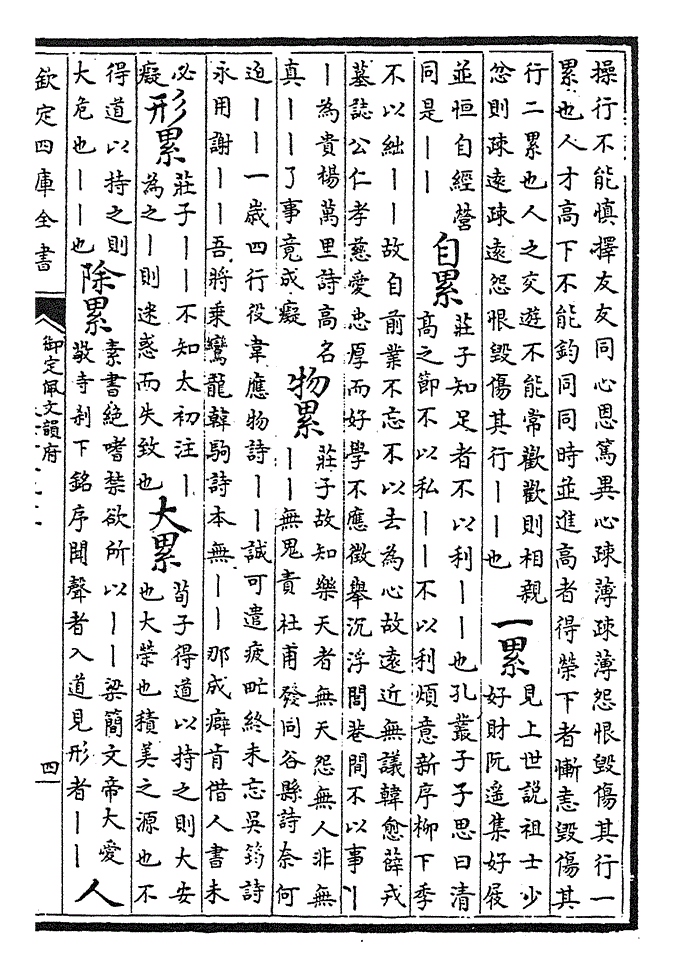 操行不能慎擇友友同心恩篤異心疎薄疎薄怨恨毀傷其行一
累也人才高下不能鈞同同時並進高者得榮下者慚恚毀傷其
行二累也人之交遊不能常歡歡則相親
忿則疎遠疎遠怨恨毀傷其行丨丨也
一累
見上世說祖士少
好財阮遥集好屐
並恒自經營
同是丨丨
自累
莊子知足者不以利丨丨也孔叢子子思曰清
高之節不以私丨丨不以利煩意新序柳下季
不以絀丨丨故自前業不忘不以去為心故遠近無議韓愈薛戎
墓誌公仁孝慈愛忠厚而好學不應徵舉沉浮閭巷間不以事丨
丨為貴楊萬里詩高名
真丨丨了事竟成癡
物累
莊子故知樂天者無天怨無人非無
丨丨無鬼責杜甫發同谷縣詩奈何
迫丨丨一歲四行役韋應物詩丨丨誠可遣疲甿終未忘吳筠詩
永用謝丨丨吾將乘鸞龍韓駒詩本無丨丨那成癖肯借人書未
必
癡
形累
莊子丨丨不知太初注丨
為之丨則迷惑而失致也
大累
荀子得道以持之則大安
也大榮也積美之源也不
得道以持之則
大危也丨丨也
除累
素書絶嗜禁欲所以丨丨梁簡文帝大愛
敬寺刹下銘序聞聲者入道見形者丨丨
人
欽定四庫全書
御定佩文韻府
四